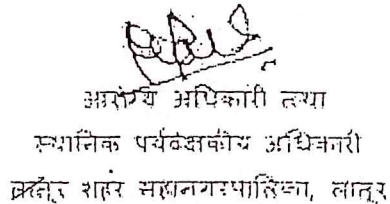 आरोग्य अधिकारी तथा
स्थानिक पर्यवेक्षकीय अधिकारी
लातूर शहर महानगरपालिका, लातूर